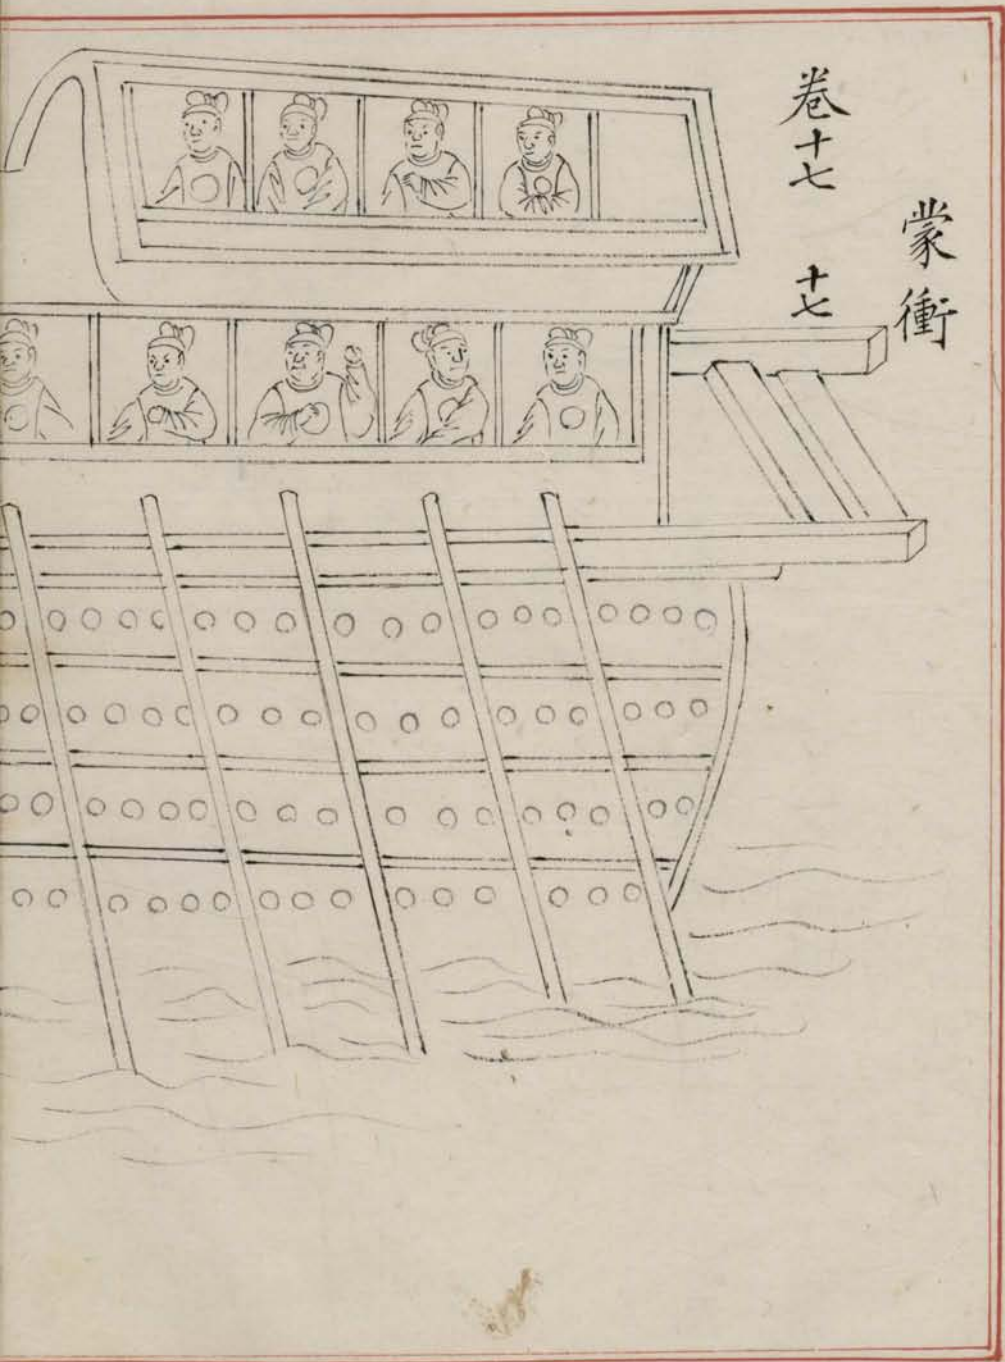 蒙衝
卷十七
十七